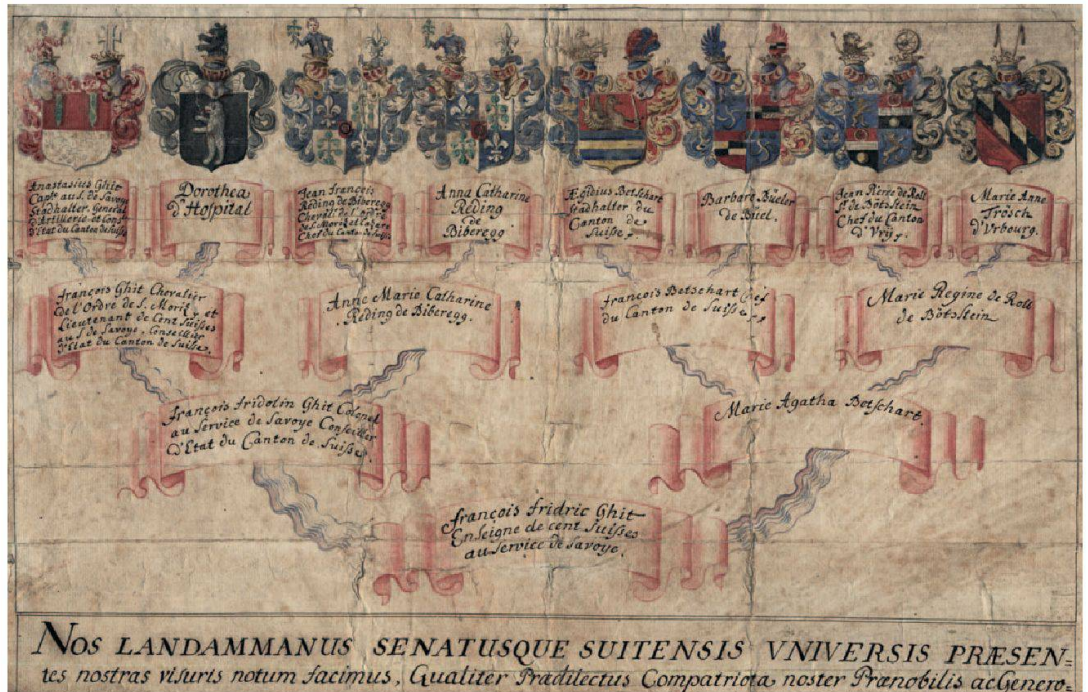 Anastasius Ghit
Capit. au S. de Savoye
Stadhalter, General
d'Artillerie et Cons.
d'Etat du Canton de Suisse
Dorothea
d'Hospital
Jean François
Reding de Biberegg
Cheval. de L'ordre
de S. Moritz et Lazare
Chef du Canton de Suisse
Anna Catharine
Reding
de
Biberegg.
Ægidius Betschart
Stadhalter du
Canton de
Suisse,
Barbara Büeler
de Büel,
de Roll
Sr. de Bötstein
Chef du Canton
d'Vry,
Marie Anne
Trösch
d'Vrbourg.
François Ghit Chevalier
de l'Ordre de S. Moritz, et
Lieutenant de Cent Suisses
au S. de Savoye, Conseiller
d'Etat du Canton de Suisse,
Anne Marie Catharine
Reding de Biberegg.
François Betschart Chef
du Canton de Suisse,
Marie Regine de Roll
de Bötstein
François Fridolin Ghit Colonel
au Service de Savoye Conseiller
d'Etat du Canton de Suisse,
Marie Agatha Betschart.
François Fridric Ghit
Enseigne de cent Suisses
au Service de Savoye.
NOS LANDAMMANUS SENATUSQUE SUITENSIS VNIVERSIS PRÆSEN=
tes nostras visuris notum facimus, Qualiter Prædilectus Compatriota noster Prænobilis ac Genero=